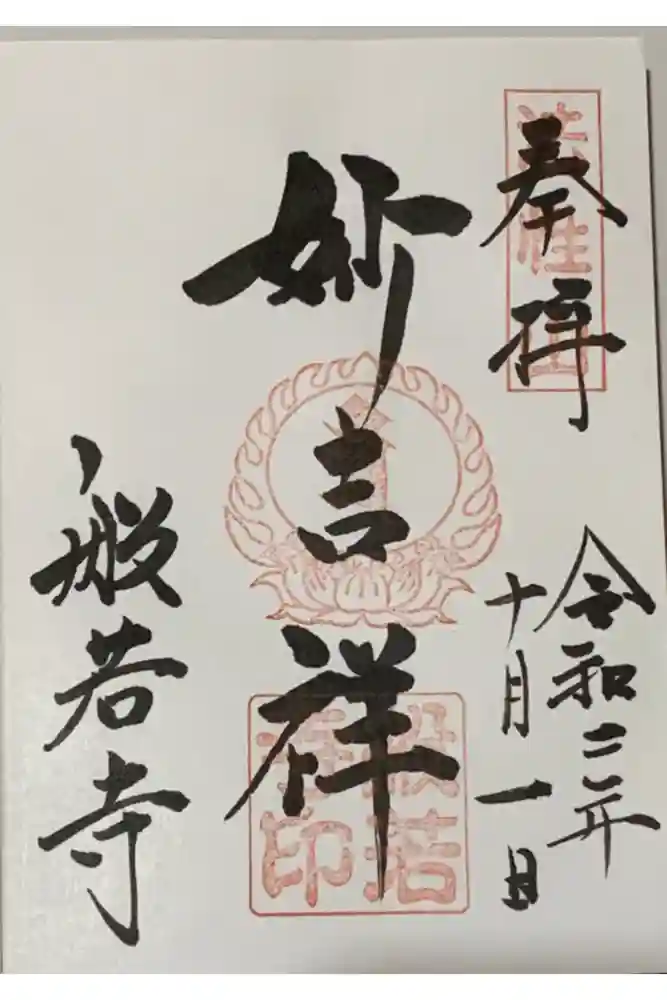 奉拝
法性山
令和三年
十月一日
妙吉祥
般若
寺印
般若寺